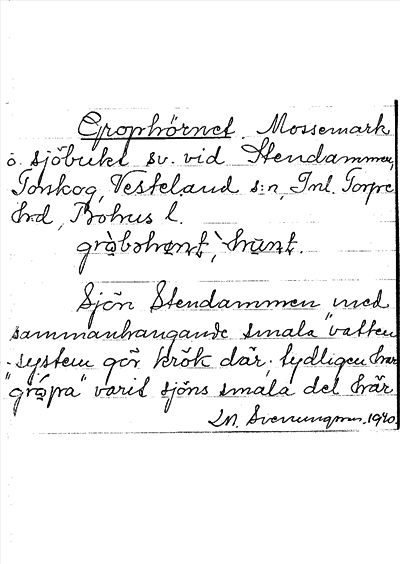 Grophörnet. Mossemark
o. sjöbukt sv. vid Stendammen,
Torskog, Vesteland s:n, Inl. Torpe
hrd, Bohus l.
gröbohønt, hünt.
Sjön Stendammen med
sammanhangande smala "vatten
-system gör krök där, tydligen har
"gröpa" varit sjöns smala del här
Lm. Svenungsson. 1940.